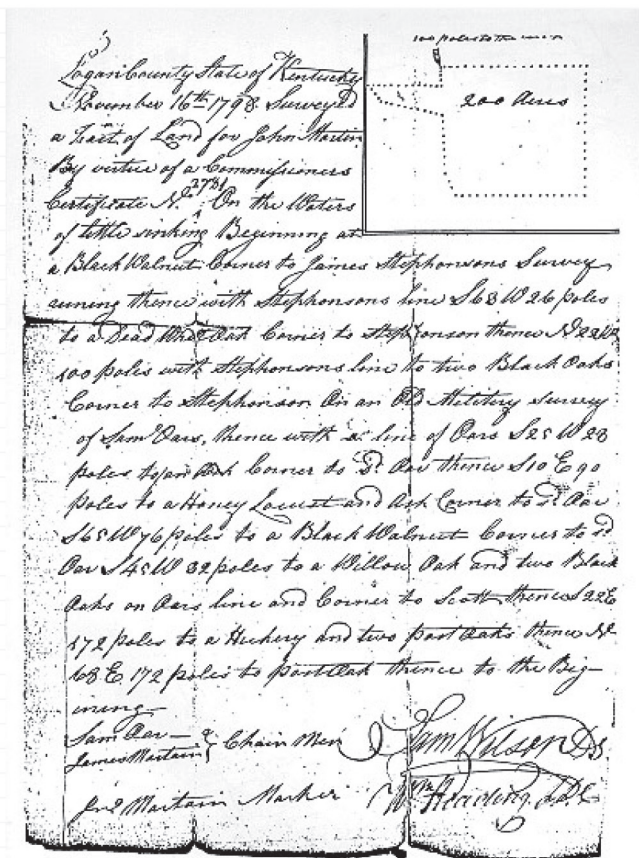 100 poles to the inch
200 Acres
Logan County State of Kentucky
November 16th 1798 Surveyed
a Tract of Land for John Martin
By virtue of a Commissioners
Certificate No 2781 On the Waters
of little sinking Beginning at
a Black Walnut Corner to James Stephonsons Survey
runing thence with Stephonsons line S68W 26 poles
to a Dead White Oak Corner to Stephonson thence N22W
100 poles with Stephonsons line to two Black Oaks
Corner to Stephonson On an Old Military survey
of Saml Oars, thence with sd line of Oars S25W 28
poles to an Ash Corner to sd Oar thence S10E 90
poles to a Honey Locust and Ash Corner to sd Oar
S65W 76 poles to a Black Walnut Corner to sd
Oar S45W 32 poles to a Willow Oak and two Black
Oaks on Oars line and Corner to Scott thence S22E
172 poles to a Hickery and two post Oaks thence N
68E 172 poles to post Oak thence to the Beg-
ining
Sam Oar
James Martain } Chain Men Sam Wilson DS
Jno Martain Marker Wm Reading